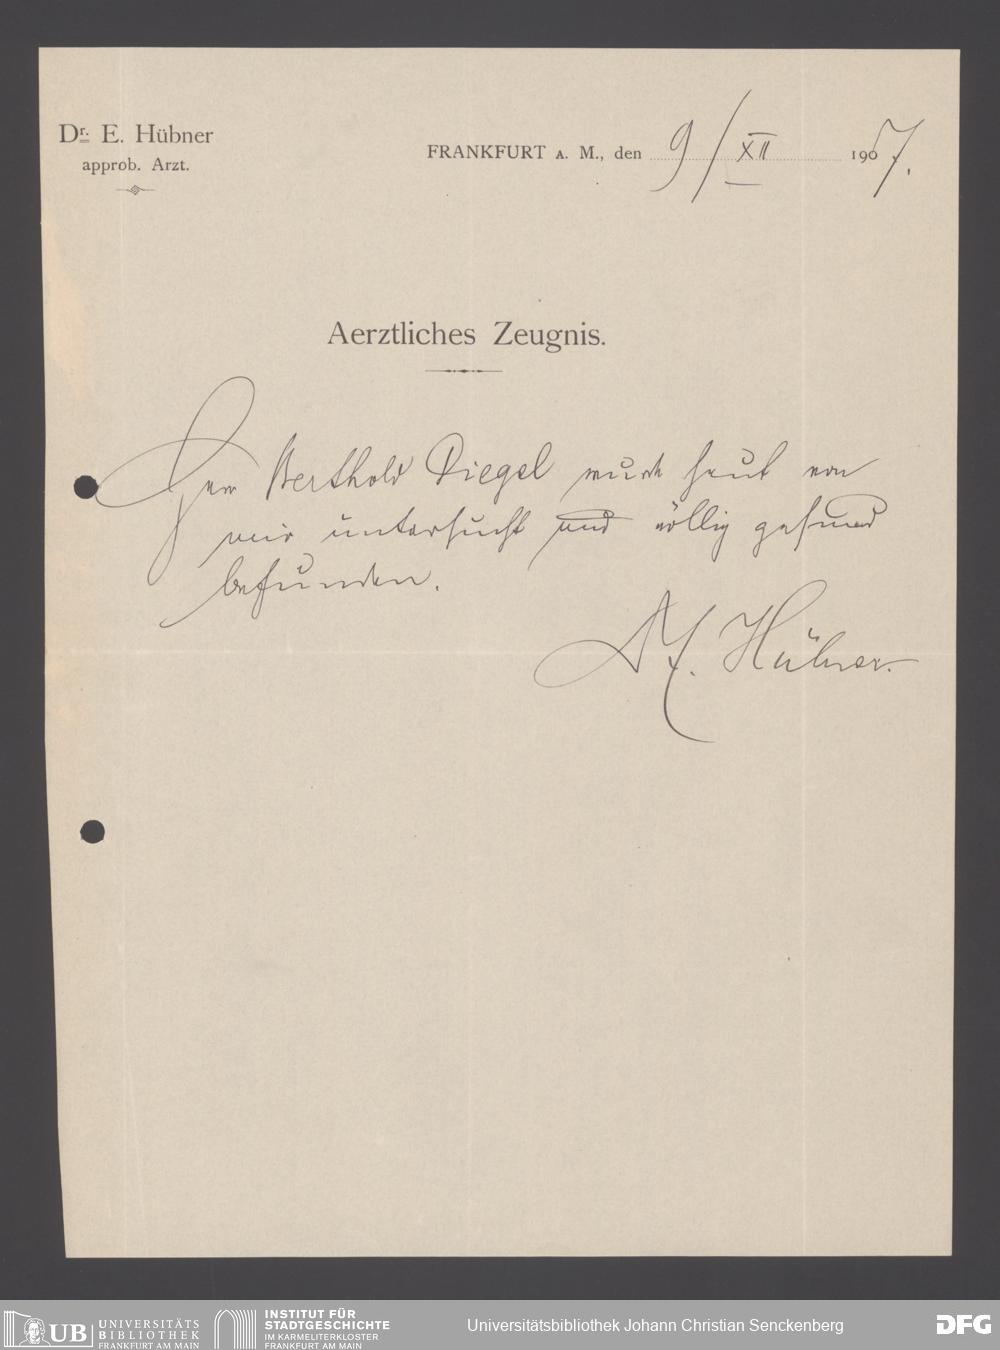 Dr. E. Hübner
approb. Arzt.
FRANKFURT A. M., den 9/XII 1907.
Aerztliches Zeugnis.
Herr Berthold Diegel wurde heut von
mir untersucht und völlig gesund
befunden.
Hübner.
UB UNIVERSITÄTS
BIBLIOTHEK
FRANKFURT AM MAIN
INSTITUT FÜR
STADTGESCHICHTE
IM KARMELITERKLOSTER
FRANKFURT AM MAIN
Universitätsbibliothek Johann Christian Senckenberg
DFG